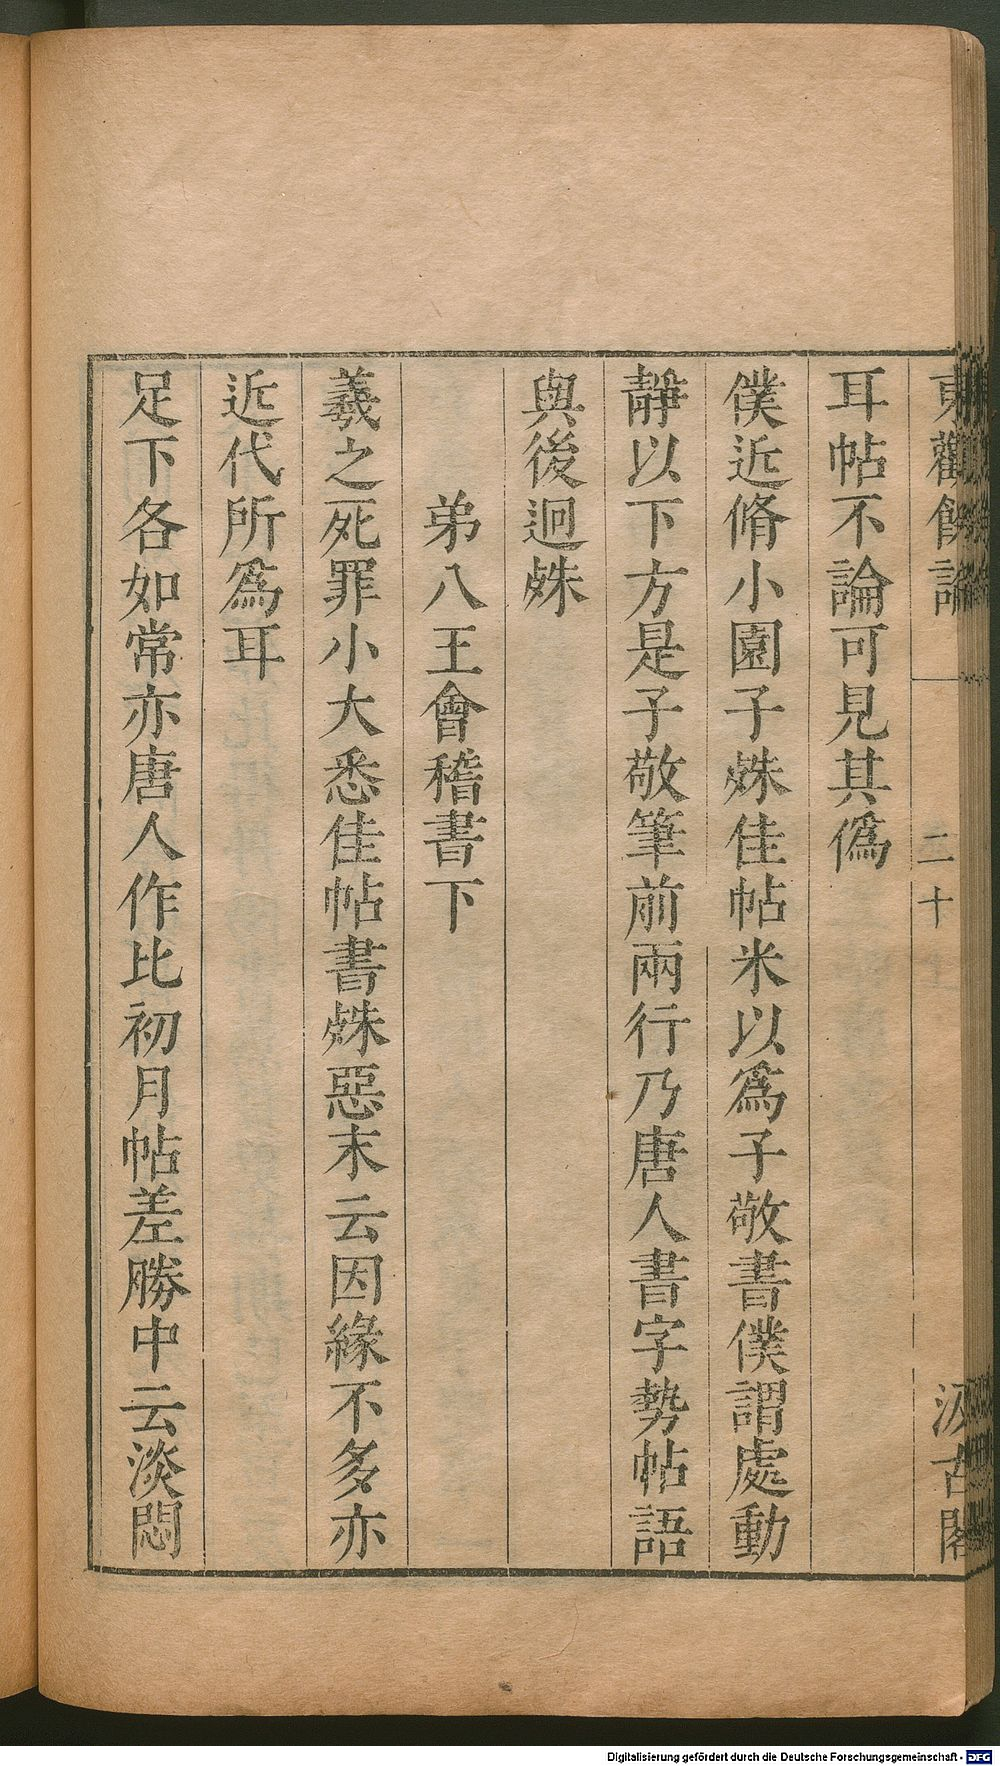 東觀餘論 二十 汲古閣
耳帖不論可見其僞
僕近脩小園子𣧑佳帖米以爲子敬書僕謂處動
靜以下方是子敬筆前兩行乃唐人書字勢帖語
與後迥𣧑
弟八王會稽書下
羲之死罪小大悉佳帖書𣧑惡末云因緣不多亦
近代所爲耳
足下各如常亦唐人作比初月帖差勝中云淡悶
Digitalisierung gefördert durch die Deutsche Forschungsgemeinschaft - DFG